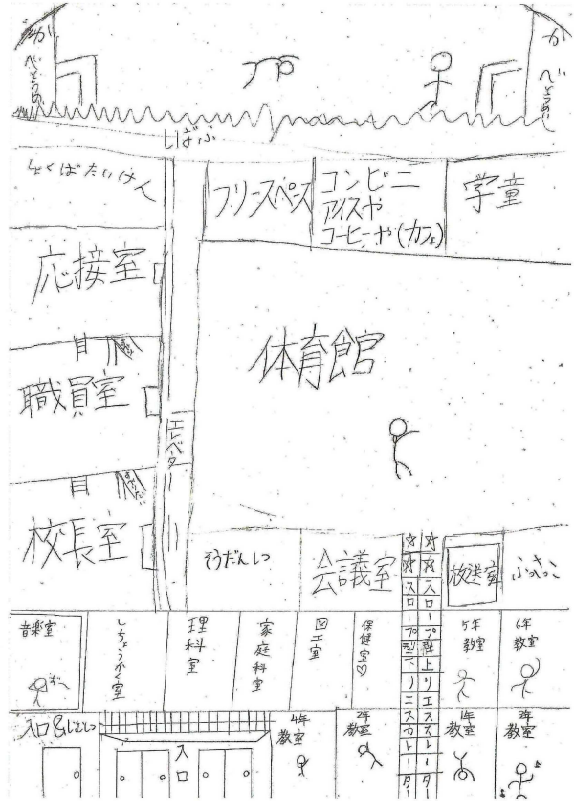 かべとうめい
かべとうめい
しばふ
しょくばたいけん
フリースペース
コンビニ
アイスや
コーヒーや(カフェ)
学童
応接室
体育館
職員室
エレベーター
すべりだい
校長室
そうだんしつ
会議室
放送室
スロープ型上りエスカレーター
音楽室
しちょうかく室
理科室
家庭科室
図工室
保健室♡
5年
教室
6年
教室
入口
4年
教室
2年
教室
1年
教室
教室